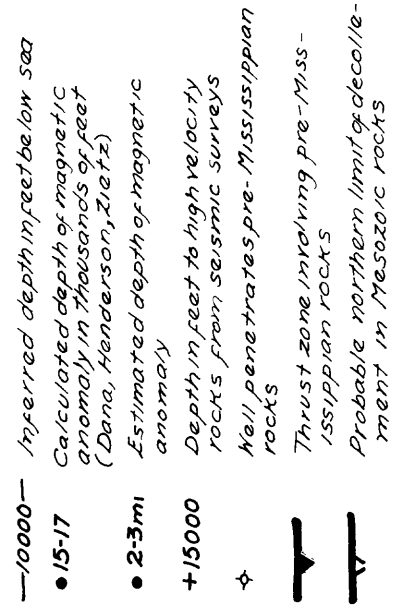 —10000— Inferred depth in feet below sea
• 15-17 Calculated depth of magnetic
anomaly in thousands of feet
(Dana, Henderson, Zietz)
• 2-3mi Estimated depth of magnetic
anomaly
+15000 Depth in feet to high velocity
rocks from seismic surveys
Well penetrates pre-Mississippian
rocks
Thrust zone involving pre-Miss-
issippian rocks
Probable northern limit of decolle-
ment in Mesozoic rocks